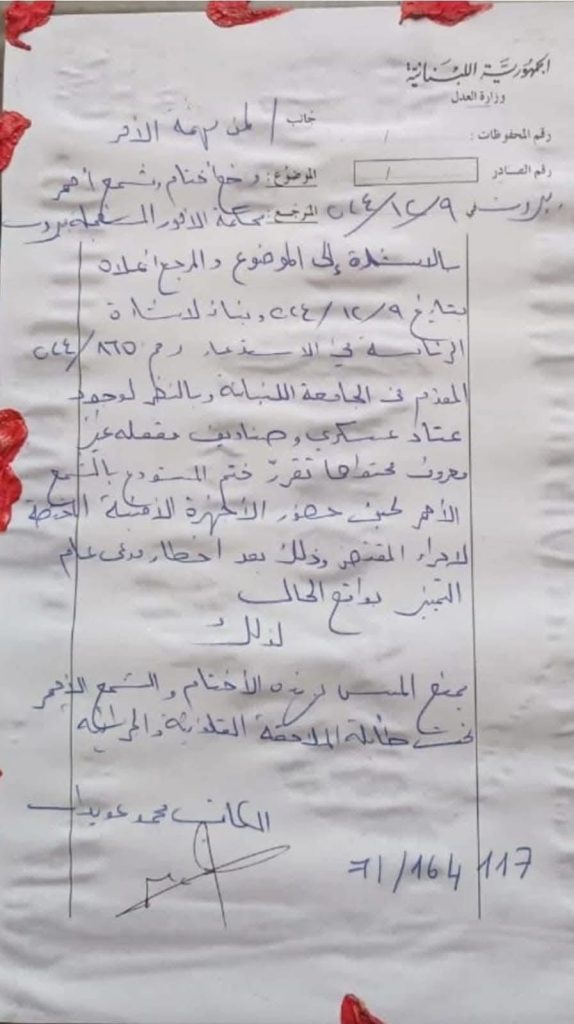 الجمهورية اللبنانية
وزارة العدل
جانب / لمن يهمه الأمر
رقم المحفوظات: /
رقم الصادر /
الموضوع: وضع أختام وشمع أحمر
بيروت في ٢٠٢٤/١٢/٩
المرجع: محكمة الأمور المستعجلة بيروت
بالاستناد إلى الموضوع والمرجع أعلاه
بتاريخ ٢٠٢٤/١٢/٩ وبناء لاشارة
الرئاسة في الاستدعاء رقم ٨٦٥/٢٠٢٤
المقدم من الجامعة اللبنانية وبالنظر لوجود
عتاد عسكري وصناديق مقفلة غير
معروف محتواها تقرر ختم المستودع بالشمع
الأحمر لحين حضور الأجهزة الأمنية المختصة
لاجراء المقتضى وذلك بعد اخطار مدعي عام
التمييز بواقع الحال
لذلك
يمنع المس بهذه الأختام والشمع الأحمر
تحت طائلة الملاحقة القانونية والجزائية
الكاتب محمد عويدات
71/164 117